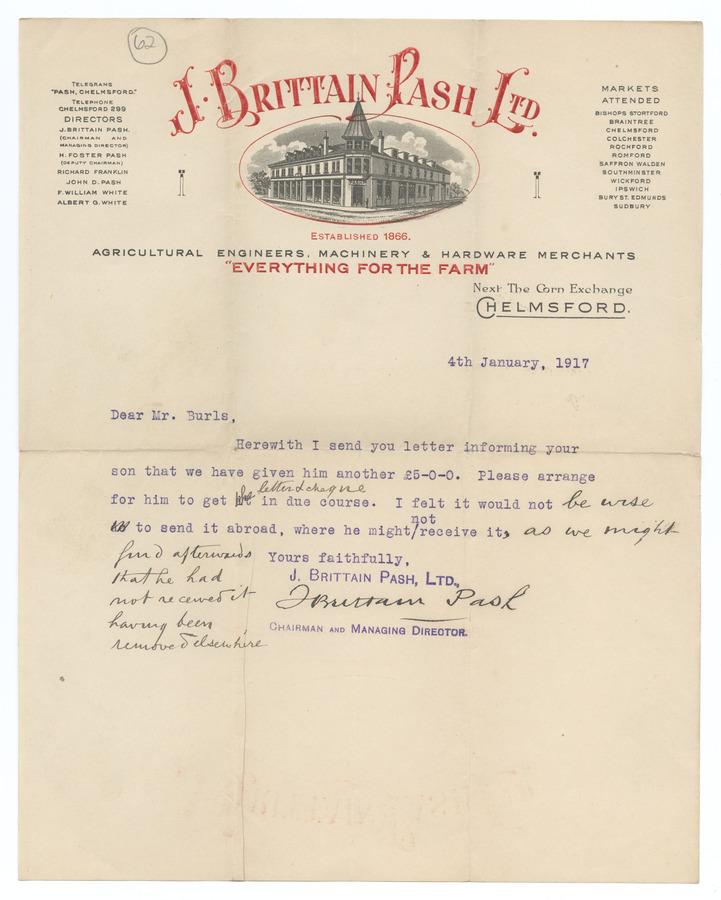 62
J. BRITTAIN PASH LTD.
TELEGRAMS
"PASH, CHELMSFORD."
TELEPHONE
CHELMSFORD 299
DIRECTORS
J. BRITTAIN PASH.
(CHAIRMAN AND
MANAGING DIRECTOR)
H. FOSTER PASH
(DEPUTY CHAIRMAN)
RICHARD FRANKLIN
JOHN D. PASH
F. WILLIAM WHITE
ALBERT G. WHITE
MARKETS
ATTENDED
BISHOPS STORTFORD
BRAINTREE
CHELMSFORD
COLCHESTER
ROCHFORD
ROMFORD
SAFFRON WALDEN
SOUTHMINSTER
WICKFORD
IPSWICH
BURY ST. EDMUNDS
SUDBURY
ESTABLISHED 1866.
AGRICULTURAL ENGINEERS, MACHINERY & HARDWARE MERCHANTS
"EVERYTHING FOR THE FARM"
Next The Corn Exchange
CHELMSFORD.
4th January, 1917
Dear Mr. Burls,
Herewith I send you letter informing your
son that we have given him another £5-0-0. Please arrange
letter & cheque
for him to get in due course. I felt it would not be wise
not
to send it abroad, where he might/receive it, as we might
find afterwards
that he had
not received it
having been
removed elsewhere
Yours faithfully,
J. BRITTAIN PASH, LTD.,
J Brittain Pash
CHAIRMAN AND MANAGING DIRECTOR.